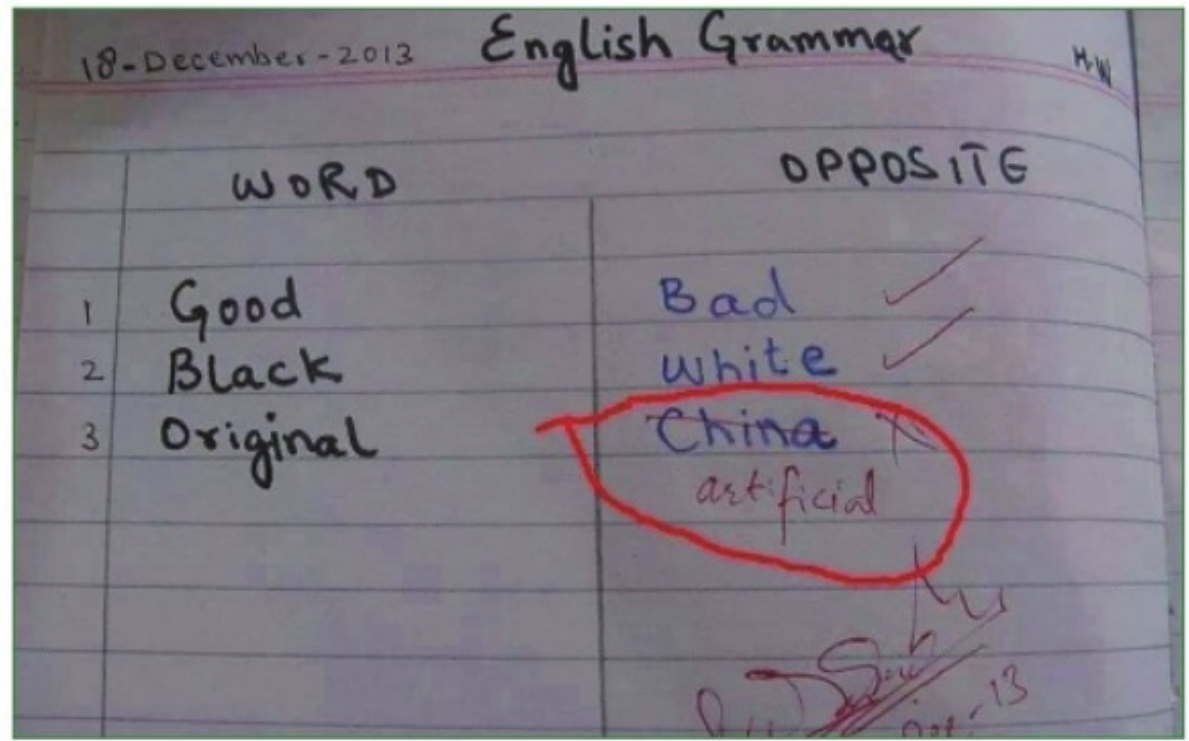 18-December-2013 English Grammar H.W
WORD OPPOSITE
1 Good Bad
2 Black White
3 Original China
artificial
13